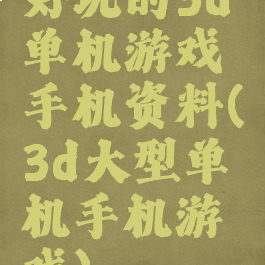 好玩的3d
单机游戏
手机资料(
3d大型单
机手机游
戏)